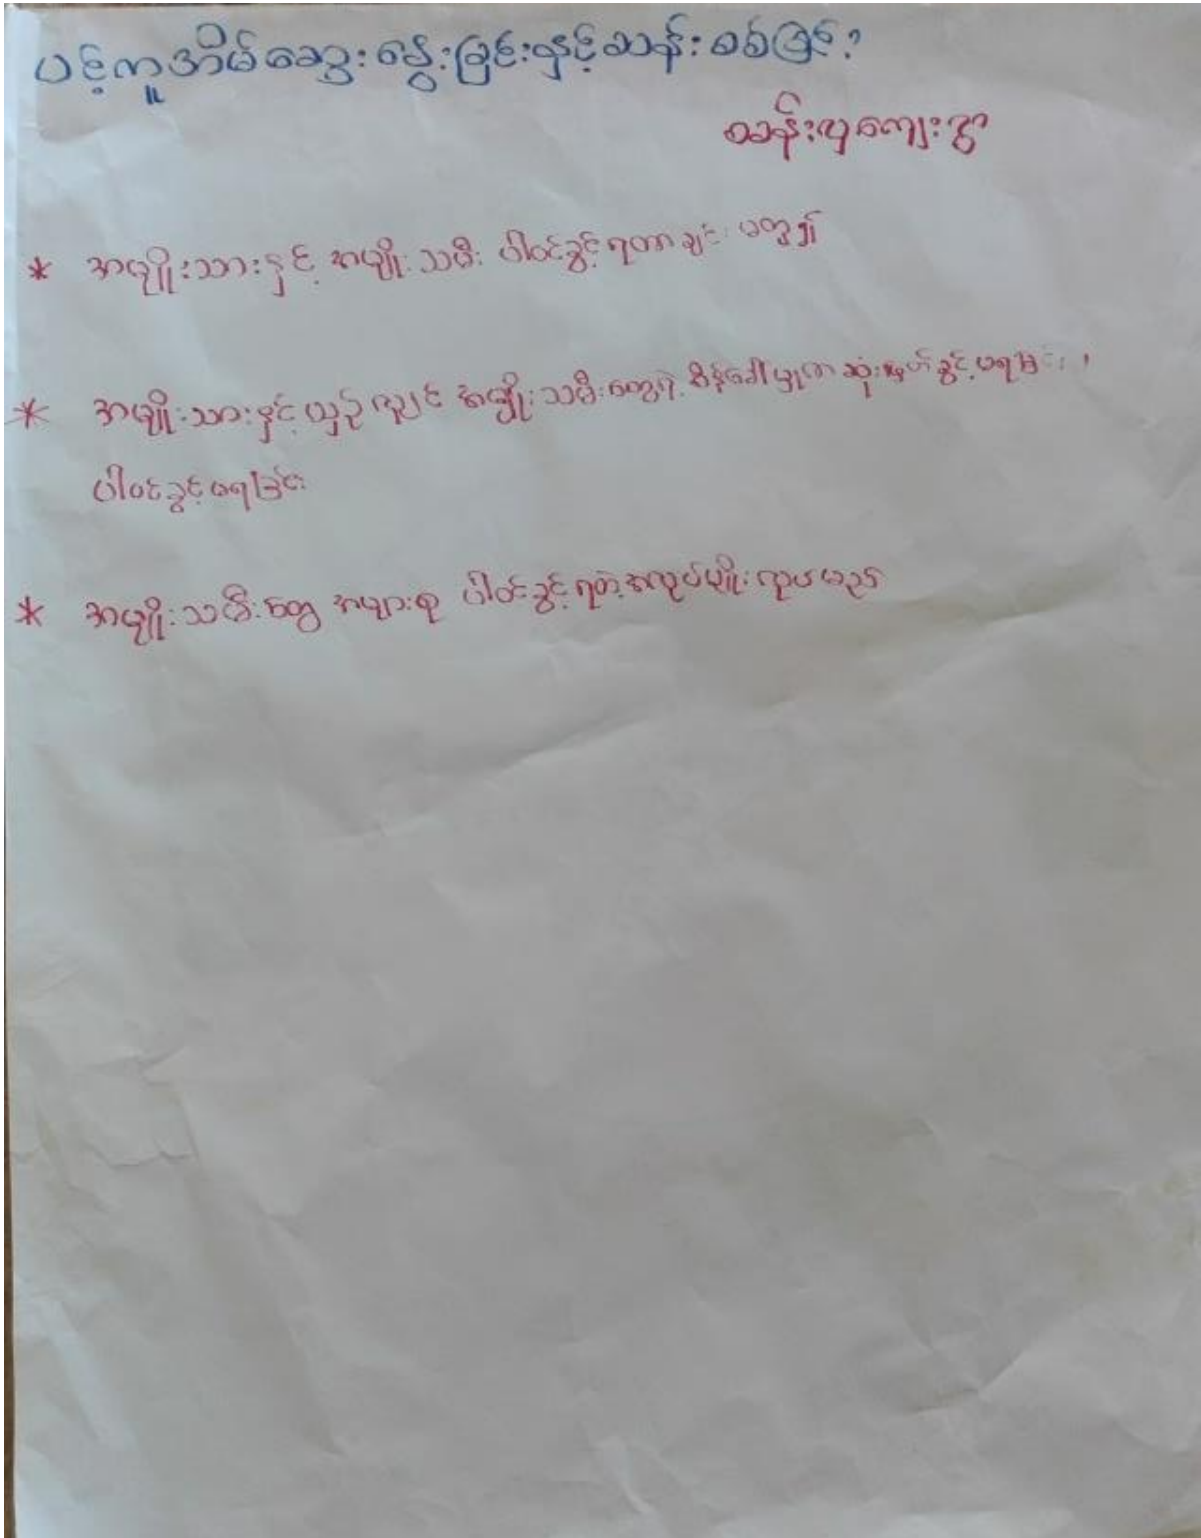 ပင့်ကူအိမ်ဆွေးနွေးခြင်းနှင့်ဆန်းစစ်ခြင်း
ထန်းလှကျေးရွာ
* အမျိုးသားနှင့် အမျိုးသမီး ပါဝင်ခွင့်ရတာချင်း မတူ၍
* အမျိုးသားနှင့်ယှဉ်လျှင် အမျိုးသမီးတွေရဲ့ စိန်ခေါ်မှုက ဆုံးဖြတ်ခွင့်မရခြင်း၊
ပါဝင်ခွင့်မရခြင်း
* အမျိုးသမီးတွေ အများစု ပါဝင်ခွင့်ရတဲ့အလုပ်မျိုးလုပ်မည်